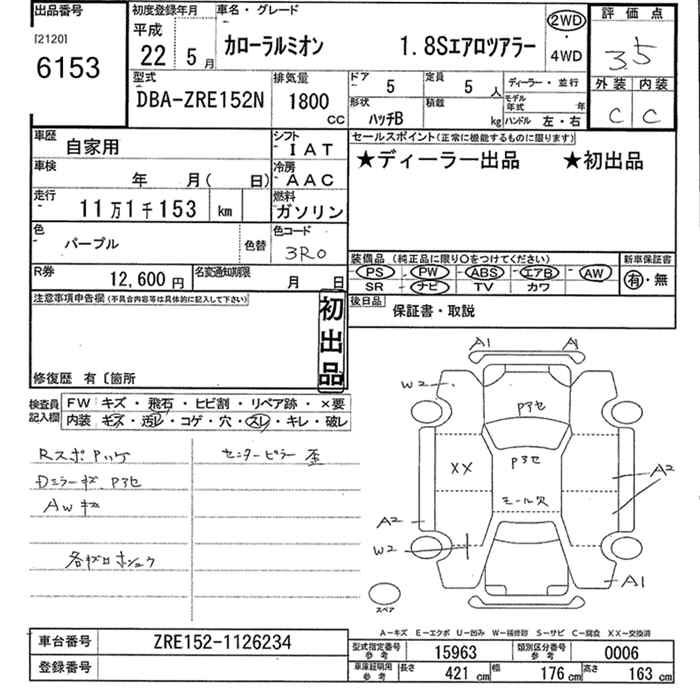 出品番号 初度登録年月 車名・グレード 評価点
[2120] 平成 2WD
6153 22 5月 カローラルミオン 1.8Sエアロツアラー ・ 3.5
4WD
型式 排気量 ドア 5 定員 5人 ディーラー・並行 外装 内装
DBA-ZRE152N 1800cc 形状 ハッチB 積載 kg モデル年式 年 C C
ハンドル 左・右
車歴 自家用 シフト IAT セールスポイント(正常に機能するものに限ります)
車検 年 月( 日) 冷房 AAC ★ディーラー出品 ★初出品
走行 11万1千153 km 燃料 ガソリン
色 パープル 色替 色コード 3R0
装備品 (純正品に限り〇をつけてください) 新車保証書
R券 12,600円 名変通知期限 月 日 PS PW ABS エアB AW 有・無
SR ナビ TV カワ
注意事項申告欄(不具合内容等は具体的に記入して下さい) 初出品 後日品 保証書・取説
修復歴 有〔箇所
検査員記入欄 FW キズ・飛石・ヒビ割・リペア跡・×要
内装 キズ・汚レ・コゲ・穴・スレ・キレ・破レ
A1 A
W2
Pアセ
Rスポ Pハゲ センターピラー 歪
Dミラーキズ Pアセ
XX Pアセ A2
AWキズ モール欠
A2
W2
各ガロホショウ
A1
スペア
A-キズ E-エクボ U-凹み W-補修跡 S-サビ C-腐食 XX-交換済
車台番号 ZRE152-1126234 型式指定番号 参考 15963 類別区分番号 参考 0006
登録番号 車庫証明用 参考 長さ 421cm 幅 176cm 高さ 163cm